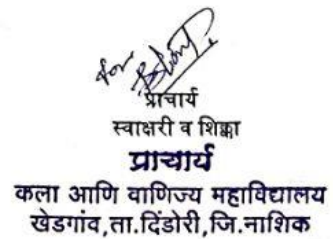 for
प्राचार्य
स्वाक्षरी व शिक्का
प्राचार्य
कला आणि वाणिज्य महाविद्यालय
खेडगांव,ता.दिंडोरी,जि.नाशिक